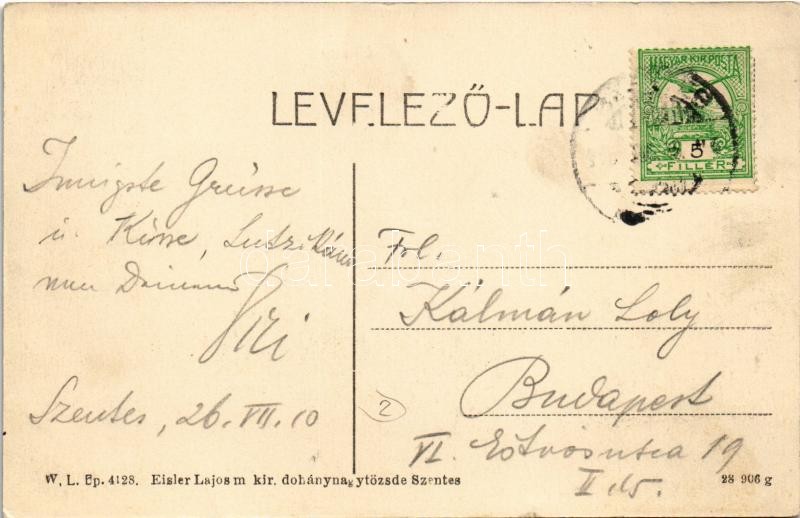 LEVELEZŐ-LAP
MAGYAR KIR. POSTA
5
FILLÉR
Innigste Grüsse
u. Küsse,
von Deinem
Szentes, 26. VII. 10
Frl.
Kálmán Loly
Budapest
VI. Eötvösutca 19
II. 15.
2
W. L. Bp. 4128. Eisler Lajos m kir. dohánynagytőzsde Szentes
28 906 g
darabanth